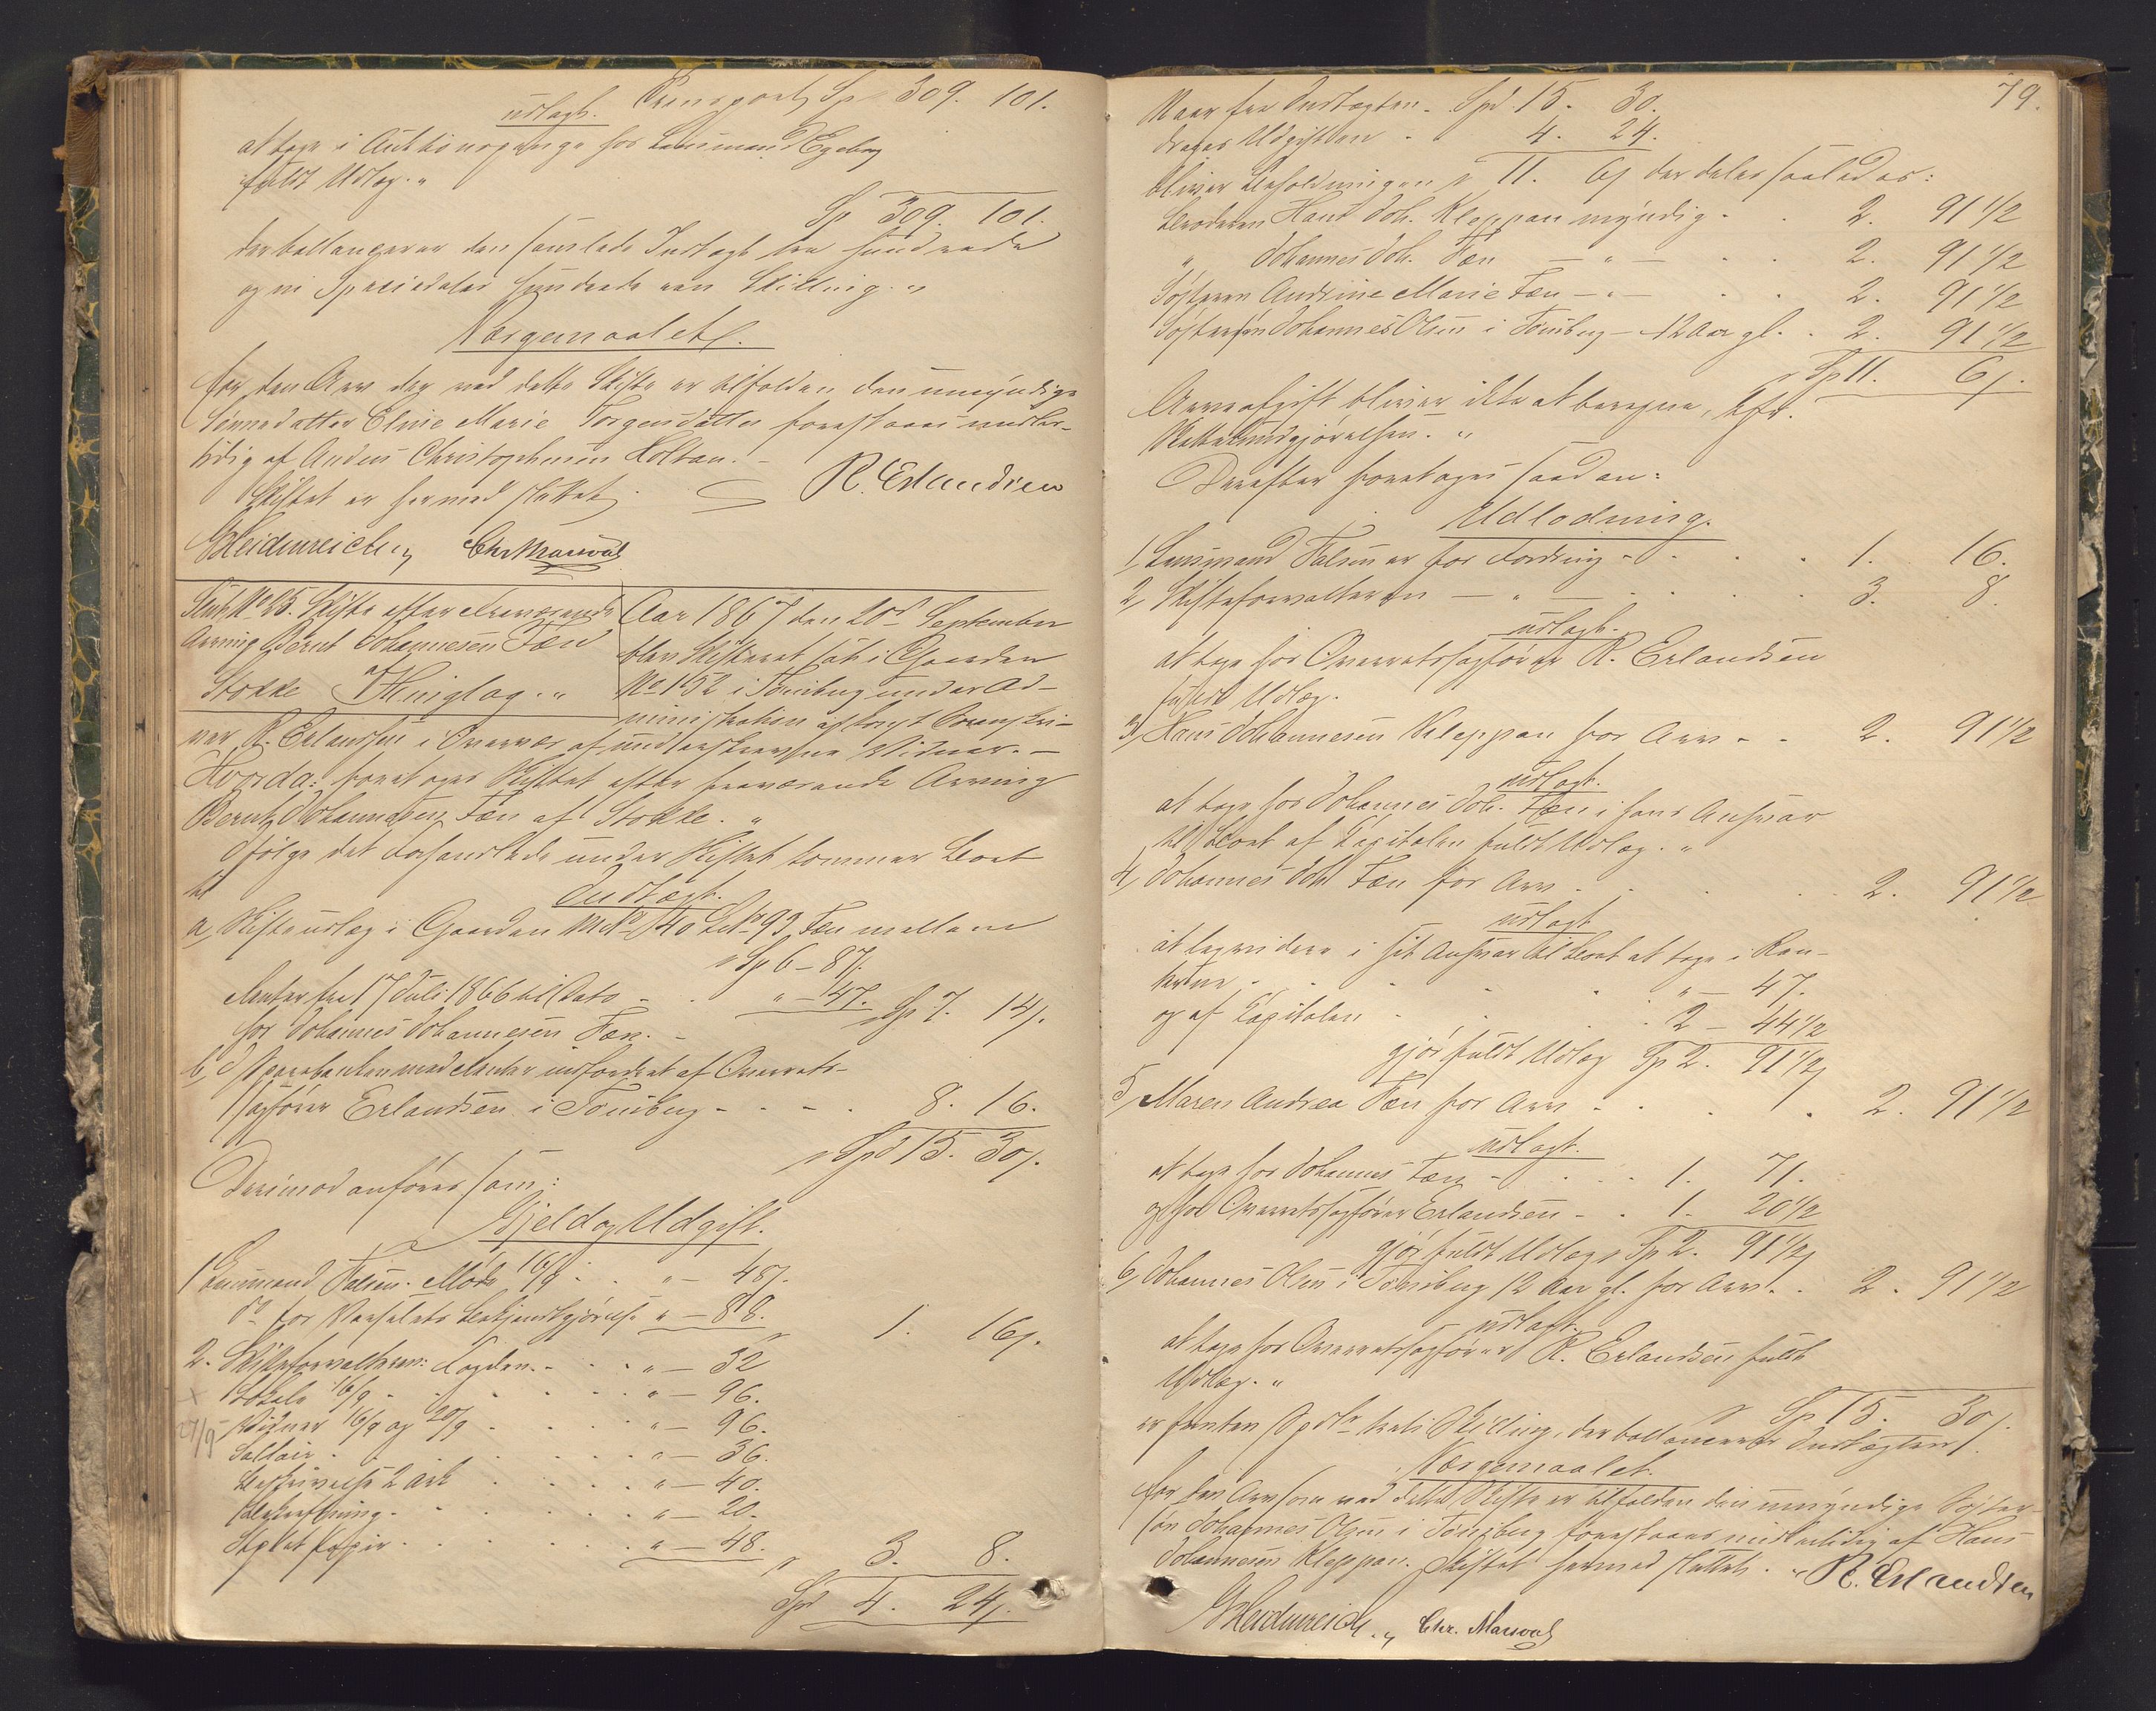 Transport Sp 309. 101.
udlagt.
at tage i Auktionspenge hos Lensmand Egeberg
fuldt Udlæg. "
Sp 309. 101.
der ballancerer den samlede Indtægt tre hundrede
og ni Speciedaler hundrede een Skilling. "
Værgemaalet
for den Arv der ved dette Skifte er tilfalden den umyndige
Sønnedatter Eline Marie Torgersdatter forestaaes midler-
tidig af Anders Christophersen Holtan. -
Skiftet er hermed sluttet
R. Erlandsen
GHeidenreich Chr Marvel
Slut No 25. Skifte efter fraværende
Arving Bernt Johannesen Fæn
Stokke Thinglag. "
Aar 1867 den 20de September
blev Skifteret sat i Gaarden
No 152 i Tønsberg under Ad-
ministration af const. Sorenskri-
ver R. Erlandsen i Overvær af undertegnede Vidner. -
Hvorda: foretoges Skiftet efter fraværende Arving
Bernt Johannesen Fæn af Stokke. "
Ifølge det Forhandlede under Skiftet kommer Boet
til
Indtægt.
a, Skifteudlæg i Gaarden MNo 40 LNo 93 Fæn mellem
Sp 6 - 87.
Renter fra 17 Juli 1866 til Dato - . " - 47. Sp 7. 14.
hos Johannes Johannesen Fæn. -
b, I Sparebanken med Renter indfordret af Overrets-
sagfører Erlandsen i Tønsberg - - - . 8. 16.
Spd 15. 30.
Derimod anføres som:
Gjeld og Udgift.
1 Lensmand Falsen. Møde 16/9 . . " - 48.
do for Varselets Bekjendtgjørelse " - 88. 1. 16.
2. Skifteforvalteren: Fogden. - . . " - 32
Lokale 16/9 . . . " - 96.
Vidner 16/9 og 20/9 . . . " - 96.
27/9
Sallair . . . " - 36.
Beskrivelse 2 Ark . . . " - 40.
Bekræftning. . . . " - 20.
Stplet Papir . . . " - 48. 3. 8.
Spd 4. 24.
79.
Naar fra Indtægten - Spd. 15. 30.
drages Udgiften - 4. 24.
bliver Beholdningen 11. 6 der deles saaledes:
Broderen Hans Joh. Kleppan myndig - . 2. 91 1/2
" Johannes Joh. Fæn - " - . . 2. 91 1/2
Søsteren Andrine Marie Fæn - " - . . 2. 91 1/2
Søstersøn Johannes Olsen i Tønsberg - 12 Aar gl. . 2. 91 1/2
Sp 11. 6.
Arveafgift bliver ikke at beregne, kfr.
Derefter foretoges saadan:
Udlodning.
1, Lensmand Falsen er for Fordring - . . . 1. 16.
2, Skifteforvalteren - " - . . . 3. 8.
udlagt.
at tage hos Overretssagfører R. Erlandsen
fuldt Udlæg.
3, Hans Johannesen Kleppan for Arv - - 2. 91 1/2
udlagt.
at tage hos Johannes Joh. Fæn i hans Ansvar
til Boet af Kapitalen fuldt Udlæg. "
4, Johannes Joh Fæn for Arv . . . 2. 91 1/2
udlagt
at liqvidere i sit Ansvar til Boet at tage i Ren-
terne . . . " - 47.
og af Kapitalen . . . 2 - 44 1/2
gjør fuldt Udlæg Sp 2. 91 1/2
5, Maren Andrea Fæn for Arv - . . . 2. 91 1/2
udlagt.
at tage hos Johannes Fæn - . . . 1. 71.
og hos Overretssagfører Erlandsen - . 1. 20 1/2
gjør fuldt Udlæg Sp 2. 91 1/2
6, Johannes Olsen i Tønsberg 12 Aar gl. for Arv. . 2. 91 1/2
udlagt.
at tage hos Overretssagfører R. Erlandsen fuldt
Udlæg. "
Sp 15. 30.
er femten Spdlr treti Skilling, der ballancerer Indtægten.
Værgemaalet.
for den Arv som ved dette Skifte er tilfalden den umyndige Søster-
søn Johannes Olsen i Tønsberg forestaaes midlertidig af Hans
Johannesen Kleppan. Skiftet hermed sluttet. " R. Erlandsen
GHeidenreich. " Chr. Marvel